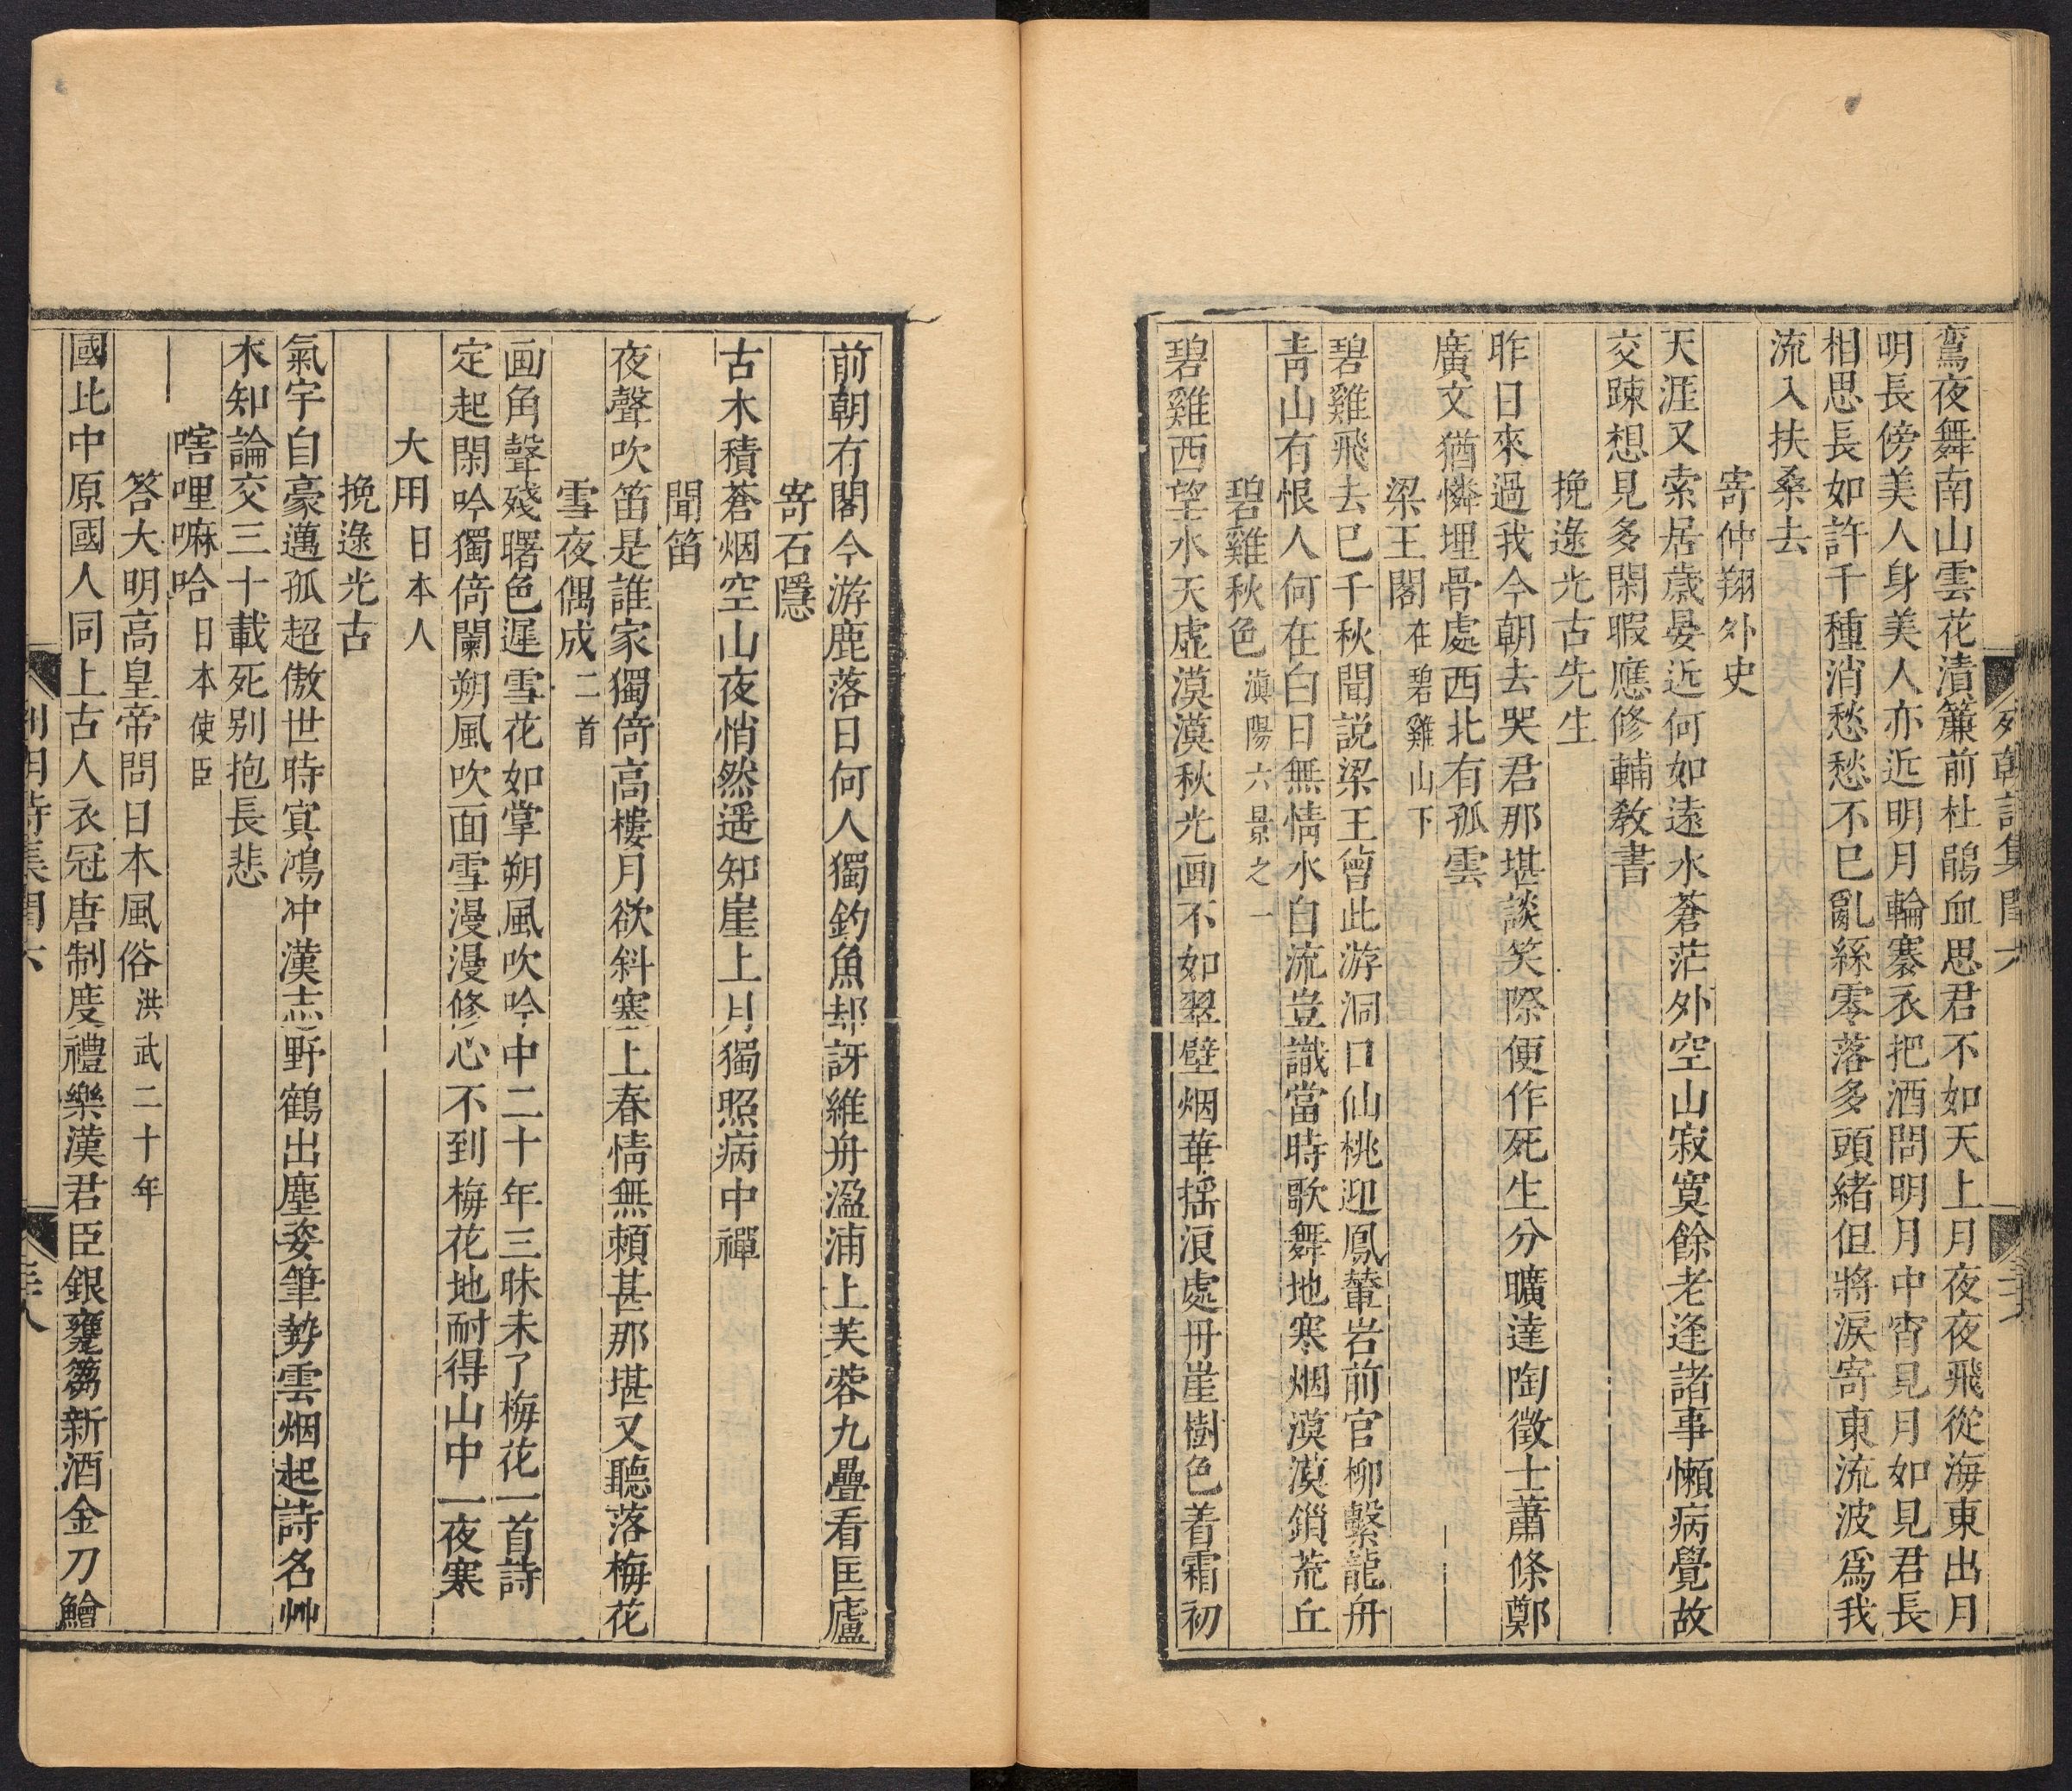 鸞夜舞南山雲花漬簾前杜鵑血思君不如天上月夜夜飛從海東出月
明長傍美人身美人亦近明月輪褰衣把酒問明月中宵見月如見君長
相思長如許千種消愁愁不已亂絲零落多頭緒但將淚寄東流波爲我
流入扶桑去
寄仲翔外史
天涯又索居歲晏近何如遠水蒼茫外空山寂寞餘老逢諸事懶病覺故
交踈想見多閑暇應修輔教書
挽逯光古先生
昨日來過我今朝去哭君那堪談笑際便作死生分曠達陶徵士蕭條鄭
廣文猶憐埋骨處西北有孤雲
梁王閣在碧雞山下
碧雞飛去已千秋聞説梁王曾此游洞口仙桃迎鳳輦岩前官柳繫龍舟
青山有恨人何在白日無情水自流豈識當時歌舞地寒烟漠漠鎖荒丘
碧雞秋色滇陽六景之一
碧雞西望水天虛漠漠秋光画不如翠壁烟華揺浪處丹崖樹色着霜初
前朝有閣今游鹿落日何人獨釣魚却訝維舟湓浦上芙蓉九疊看匡廬
寄石隱
古木積蒼烟空山夜悄然遥知崖上月獨照病中禪
聞笛
夜聲吹笛是誰家獨倚高樓月欲斜塞上春情無頼甚那堪又聽落梅花
雪夜偶成二首
画角聲殘曙色遲雪花如掌朔風吹吟中二十年三昧未了梅花一首詩
定起閑吟獨倚闌朔風吹面雪漫漫修心不到梅花地耐得山中一夜寒
大用日本人
挽逯光古
氣宇自豪邁孤超傲世時寅鴻冲漢志野鶴出塵姿筆勢雲烟起詩名艸
木知論交三十載死别抱長悲
嗐哩嘛哈日本使臣
答大明高皇帝問日本風俗洪武二十年
國比中原國人同上古人衣冠唐制度禮樂漢君臣銀甕蒭新酒金刀鱠